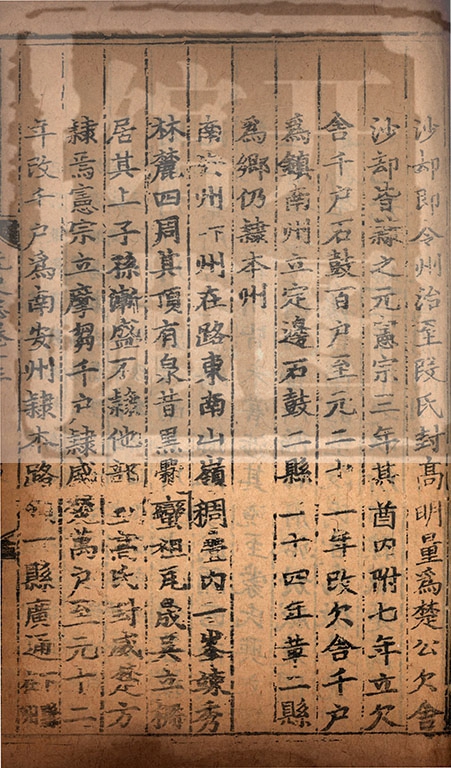 沙却即今州治至段氏封高明量爲楚公欠舍
沙却皆隸之元憲宗三年其酋内附七年立欠
舍千户石鼓百户至元二十一年改欠舍千户
爲鎮南州立定邊石鼓二縣二十四年革二縣
爲鄉仍隸本州
南安州下州在路東南山嶺稠疊内一峯竦秀
林麓四周其頂有泉昔黑爨蠻祖瓦晟吴立栅
居其上子孫漸盛不隸他部至高氏封威楚方
隸焉憲宗立摩芻千户隸威楚萬户至元十二
年改千户爲南安州隸本路領一縣廣通